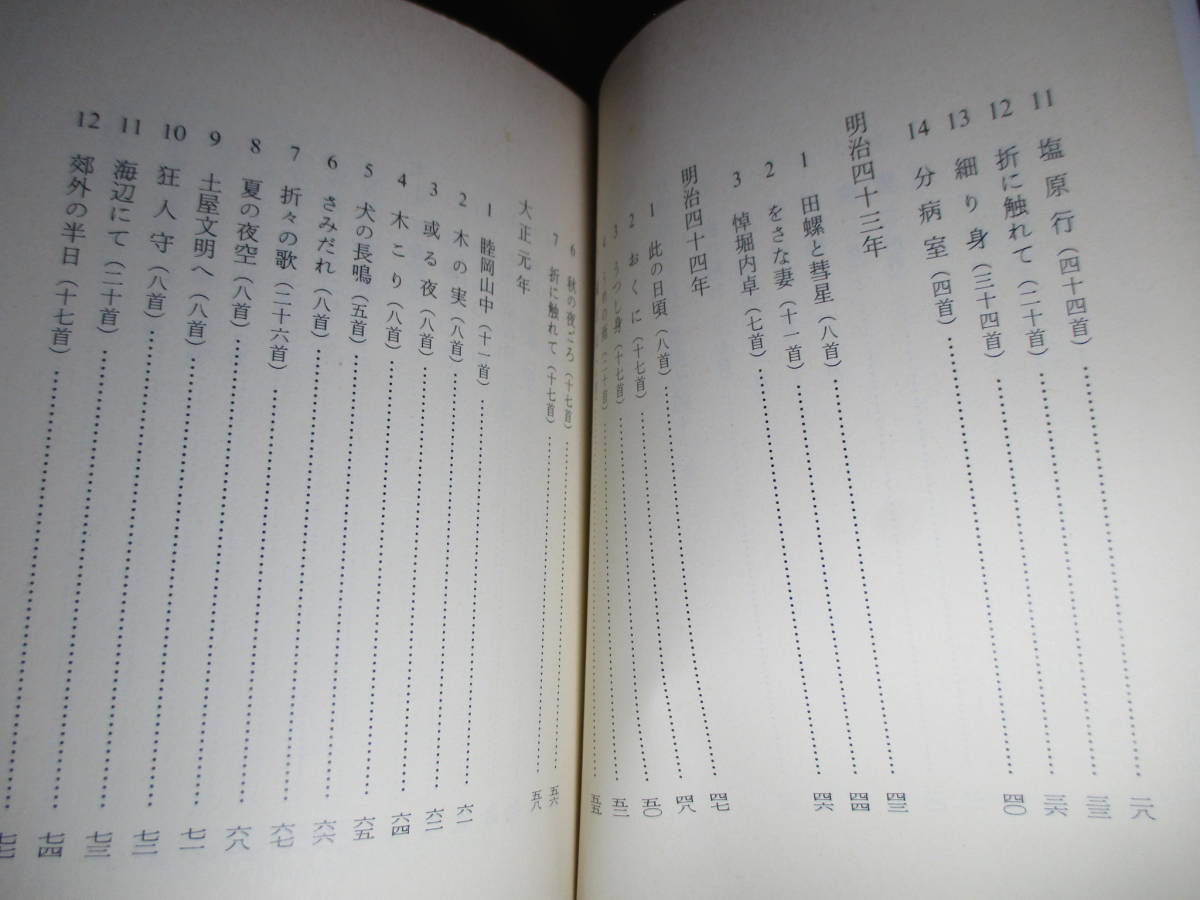 11 塩原行（四十四首）……二八
12 折に触れて（二十首）……三三
13 細り身（三十四首）……三六
14 分病室（四首）……四〇
明治四十三年
1 田螺と彗星（八首）……四三
2 をさな妻（十一首）……四四
3 悼堀内卓（七首）……四六
明治四十四年
1 此の日頃（八首）……四七
2 おくに（十七首）……四八
3 うつし身（十七首）……五〇
4 の雨（二十首）……五二
……五五
6 秋の夜ごろ（十七首）……五六
7 折に触れて（十七首）……五八
大正元年
1 睦岡山中（十一首）……六一
2 木の実（八首）……六二
3 或る夜（八首）……六四
4 木こり（八首）……六五
5 犬の長鳴（五首）……六六
6 さみだれ（八首）……六七
7 折々の歌（二十六首）……六八
8 夏の夜空（八首）……七一
9 土屋文明へ（八首）……七二
10 狂人守（八首）……七三
11 海辺にて（二十首）……七四
12 郊外の半日（十七首）……七七